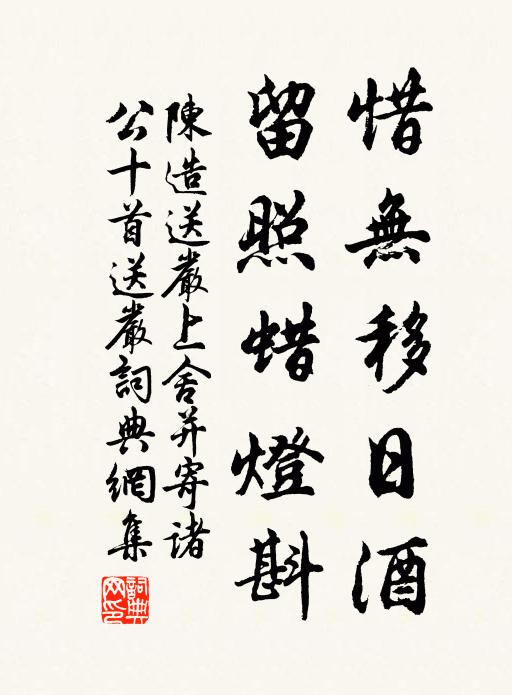 惜無移日酒
留照蜡燈斟
陳造送嚴上舍并寄諸
公十首送嚴詞典網集
詞典網印